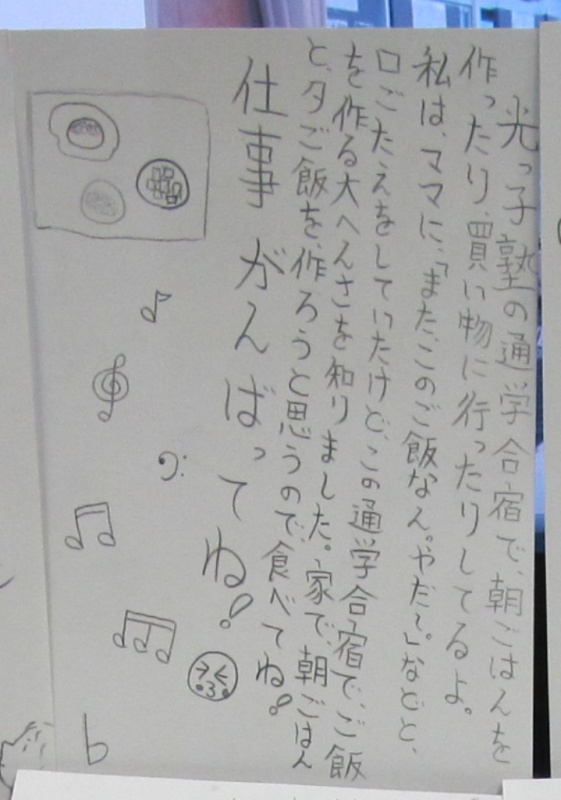 光っ子塾の通学合宿で、朝ごはんを
作ったり、買い物に行ったりしてるよ。
私は、ママに、「また、このご飯なん。やだ〜。」などと、
口ごたえをしていたけど、この通学合宿で、ご飯
を作る大へんさを知りました。家で、朝ごはん
と、夕ご飯を、作ろうと思うので、食べてね！
仕事がんばってね！